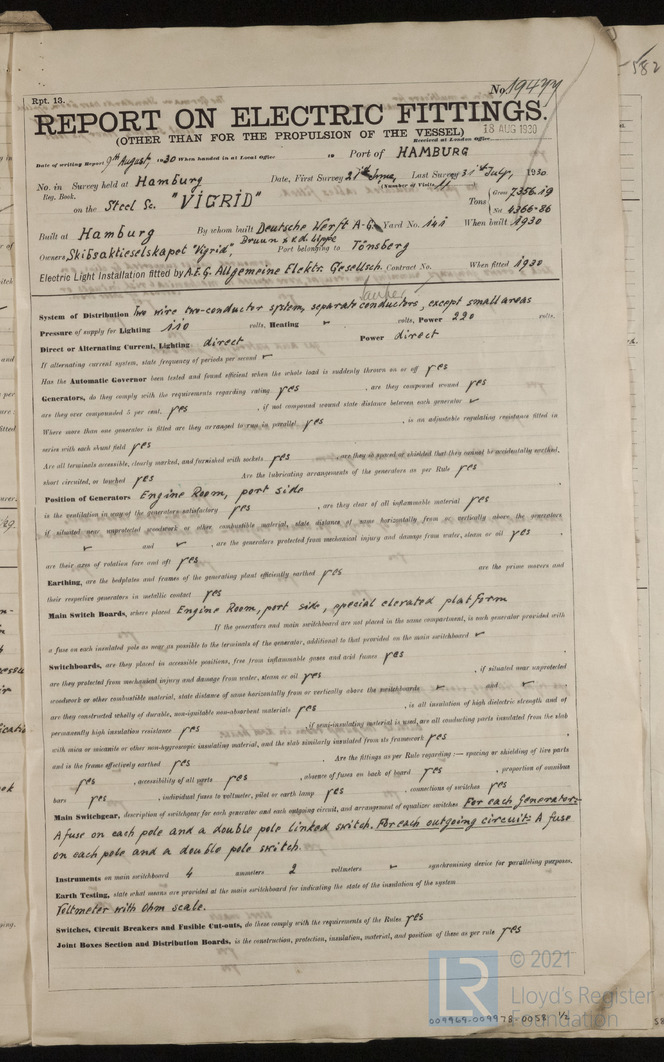 Rpt. 13.
No. 19477
REPORT ON ELECTRIC FITTINGS.
(OTHER THAN FOR THE PROPULSION OF THE VESSEL)
Received at London Office
18 AUG 1930
Date of writing Report 9th August 1930 When handed in at Local Office 19 Port of HAMBURG
No. in Survey held at Hamburg Date, First Survey 21st June, Last Survey 31st July, 1930
Reg. Book. (Number of Visits 11)
on the Steel Sc. "VIGRID" Tons { Gross 7356.19 Net 4366.86
Built at Hamburg By whom built Deutsche Werft A-G. Yard No. 141 When built 1930
Owners Skibsaktieselskapet "Vigrid", Bruun & v.d. Lippe Port belonging to Tönsberg
Electric Light Installation fitted by A.E.G. Allgemeine Elektr. Gesellsch. Contract No. When fitted 1930
System of Distribution Two wire two-conductor system, separate conductors, except small areas
Pressure of supply for Lighting 110 volts, Heating ✓ volts, Power 220 volts.
Direct or Alternating Current, Lighting direct Power direct
If alternating current system, state frequency of periods per second ✓
Has the Automatic Governor been tested and found efficient when the whole load is suddenly thrown on or off yes
Generators, do they comply with the requirements regarding rating yes , are they compound wound yes
are they over compounded 5 per cent. yes , if not compound wound state distance between each generator ✓
Where more than one generator is fitted are they arranged to run in parallel yes , is an adjustable regulating resistance fitted in
series with each shunt field yes
Are all terminals accessible, clearly marked, and furnished with sockets yes , are they so spaced or shielded that they cannot be accidentally earthed,
short circuited, or touched yes Are the lubricating arrangements of the generators as per Rule yes
Position of Generators Engine Room, port side
is the ventilation in way of the generators satisfactory yes , are they clear of all inflammable material yes
if situated near unprotected woodwork or other combustible material, state distance of same horizontally from or vertically above the generators
✓ and ✓ , are the generators protected from mechanical injury and damage from water, steam or oil yes ,
are their axes of rotation fore and aft yes
Earthing, are the bedplates and frames of the generating plant efficiently earthed yes are the prime movers and
their respective generators in metallic contact yes
Main Switch Boards, where placed Engine Room, port side, special elevated platform
If the generators and main switchboard are not placed in the same compartment, is each generator provided with
a fuse on each insulated pole as near as possible to the terminals of the generator, additional to that provided on the main switchboard ✓
Switchboards, are they placed in accessible positions, free from inflammable gases and acid fumes yes
are they protected from mechanical injury and damage from water, steam or oil yes , if situated near unprotected
woodwork or other combustible material, state distance of same horizontally from or vertically above the switchboards ✓ and ✓ ,
are they constructed wholly of durable, non-ignitable non-absorbent materials yes , is all insulation of high dielectric strength and of
permanently high insulation resistance yes , if semi-insulating material is used, are all conducting parts insulated from the slab
with mica or micanite or other non-hygroscopic insulating material, and the slab similarly insulated from its framework yes ,
and is the frame effectively earthed yes . Are the fittings as per Rule regarding:— spacing or shielding of live parts
yes , accessibility of all parts yes , absence of fuses on back of board yes , proportion of omnibus
bars yes , individual fuses to voltmeter, pilot or earth lamp yes , connections of switches yes
Main Switchgear, description of switchgear for each generator and each outgoing circuit, and arrangement of equalizer switches For each Generator:
A fuse on each pole and a double pole linked switch. For each outgoing circuit: A fuse
on each pole and a double pole switch.
Instruments on main switchboard 4 ammeters 2 voltmeters ✓ synchronising device for paralleling purposes.
Earth Testing, state what means are provided at the main switchboard for indicating the state of the insulation of the system
Voltmeter with Ohm scale.
Switches, Circuit Breakers and Fusible Cut-outs, do these comply with the requirements of the Rules yes
Joint Boxes Section and Distribution Boards, is the construction, protection, insulation, material, and position of these as per rule yes
© 2021
Lloyd's Register
Foundation
009969-009978-0058 1/2